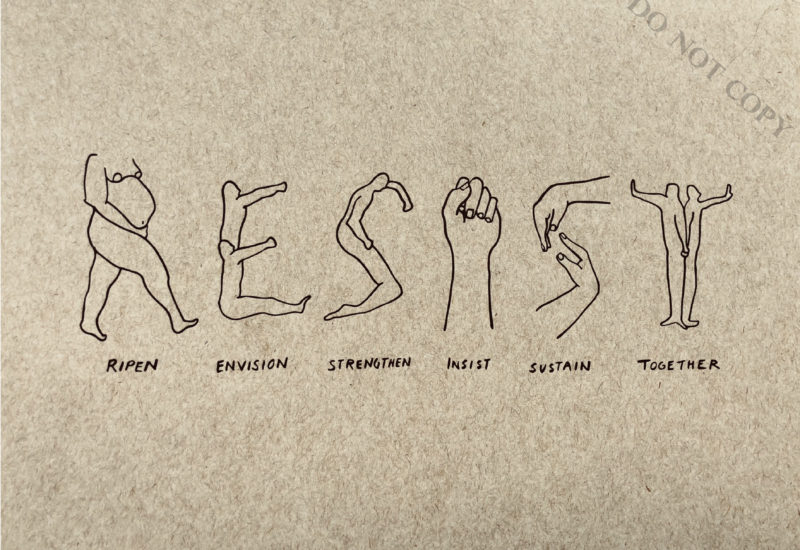 DO NOT COPY
RESIST
RIPEN ENVISION STRENGTHEN INSIST SUSTAIN TOGETHER